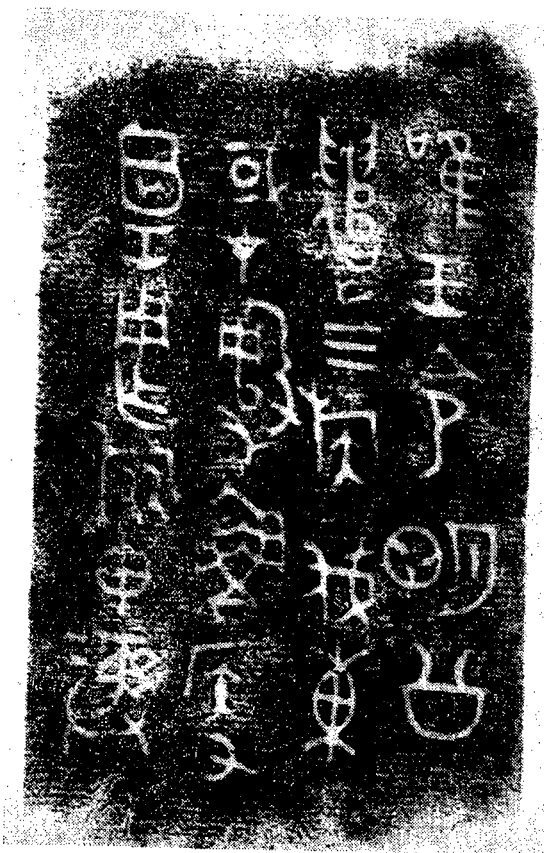 隹王令明公
遣三族伐東
或才𤞷魯侯又
𡆥工用乍旅彝